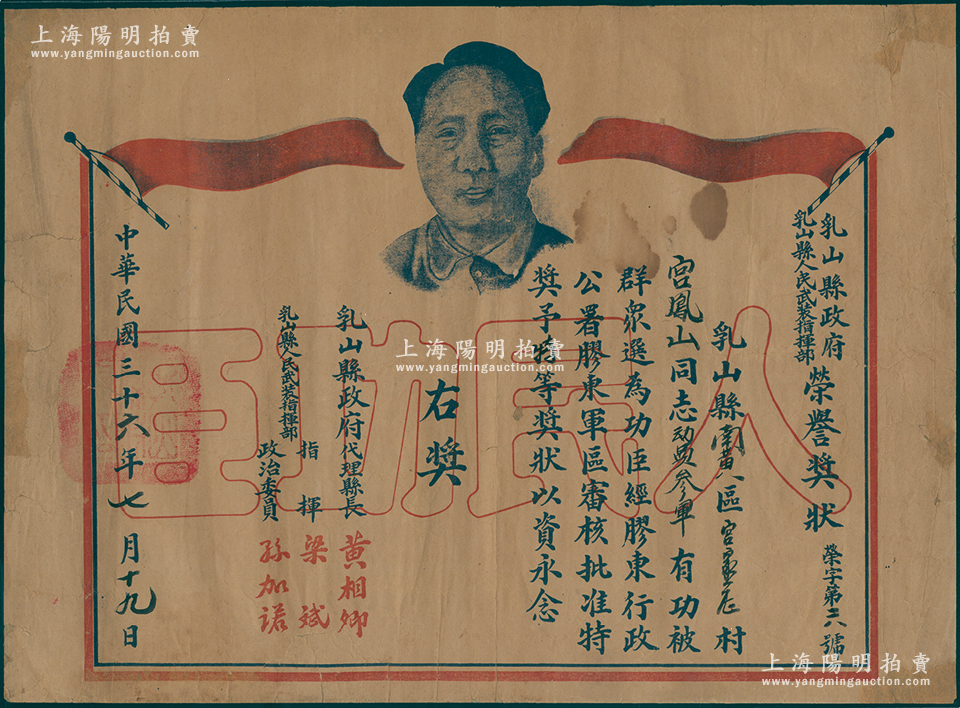 上海陽明拍賣
www.yangmingauction.com
乳山縣政府
乳山縣人民武裝指揮部
榮譽奬狀
榮字第三八號
乳山縣南黃區宮家庄村
宮鳳山同志动员參軍有功被
群眾選為功臣經膠東行政
公署膠東軍區審核批准特
奬予特等奬狀以資永念
右奬
乳山縣政府代理縣長 黃相卿
乳山縣人民武裝指揮部
指揮 梁斌
政治委員 孫加諾
中華民國三十六年七月十九日
人民功臣
上海陽明拍賣
www.yangmingauction.com
上海陽明拍賣
www.yangmingauction.com